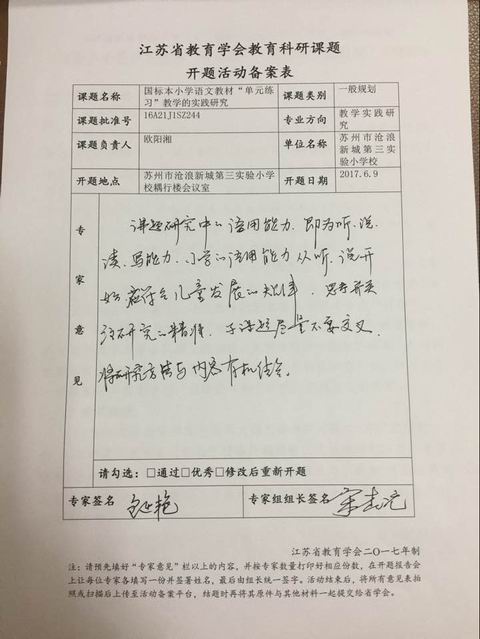 江苏省教育学会教育科研课题
开题活动备案表
课题名称 国标本小学语文教材“单元练习”教学的实践研究 课题类别 一般规划
课题批准号 16A21J1SZ244 专业方向 教学实践研究
课题负责人 欧阳湘 单位名称 苏州市沧浪新城第三实验小学校
开题地点 苏州市沧浪新城第三实验小学校耦行楼会议室 开题日期 2017.6.9
专家意见
课题研究中的语用能力,即为听、说、
读、写能力,小学的语用能力从听、说开
始,符合儿童发展的规律,思考并关
注研究的精准,子课题尽量不要交叉,
将研究方法与内容有机结合。
请勾选:□通过□优秀□修改后重新开题
专家签名 专家组组长签名
江苏省教育学会二〇一七年制
注:请预先填好“专家意见”栏以上的内容,并按专家数量打印好相应份数,在开题报告会
上让每位专家各填写一份并签署姓名,最后由组长统一签字。活动结束后,将所有意见表拍
照或扫描后上传至活动备案平台,结题时再将其原件与其他材料一起提交给省学会。